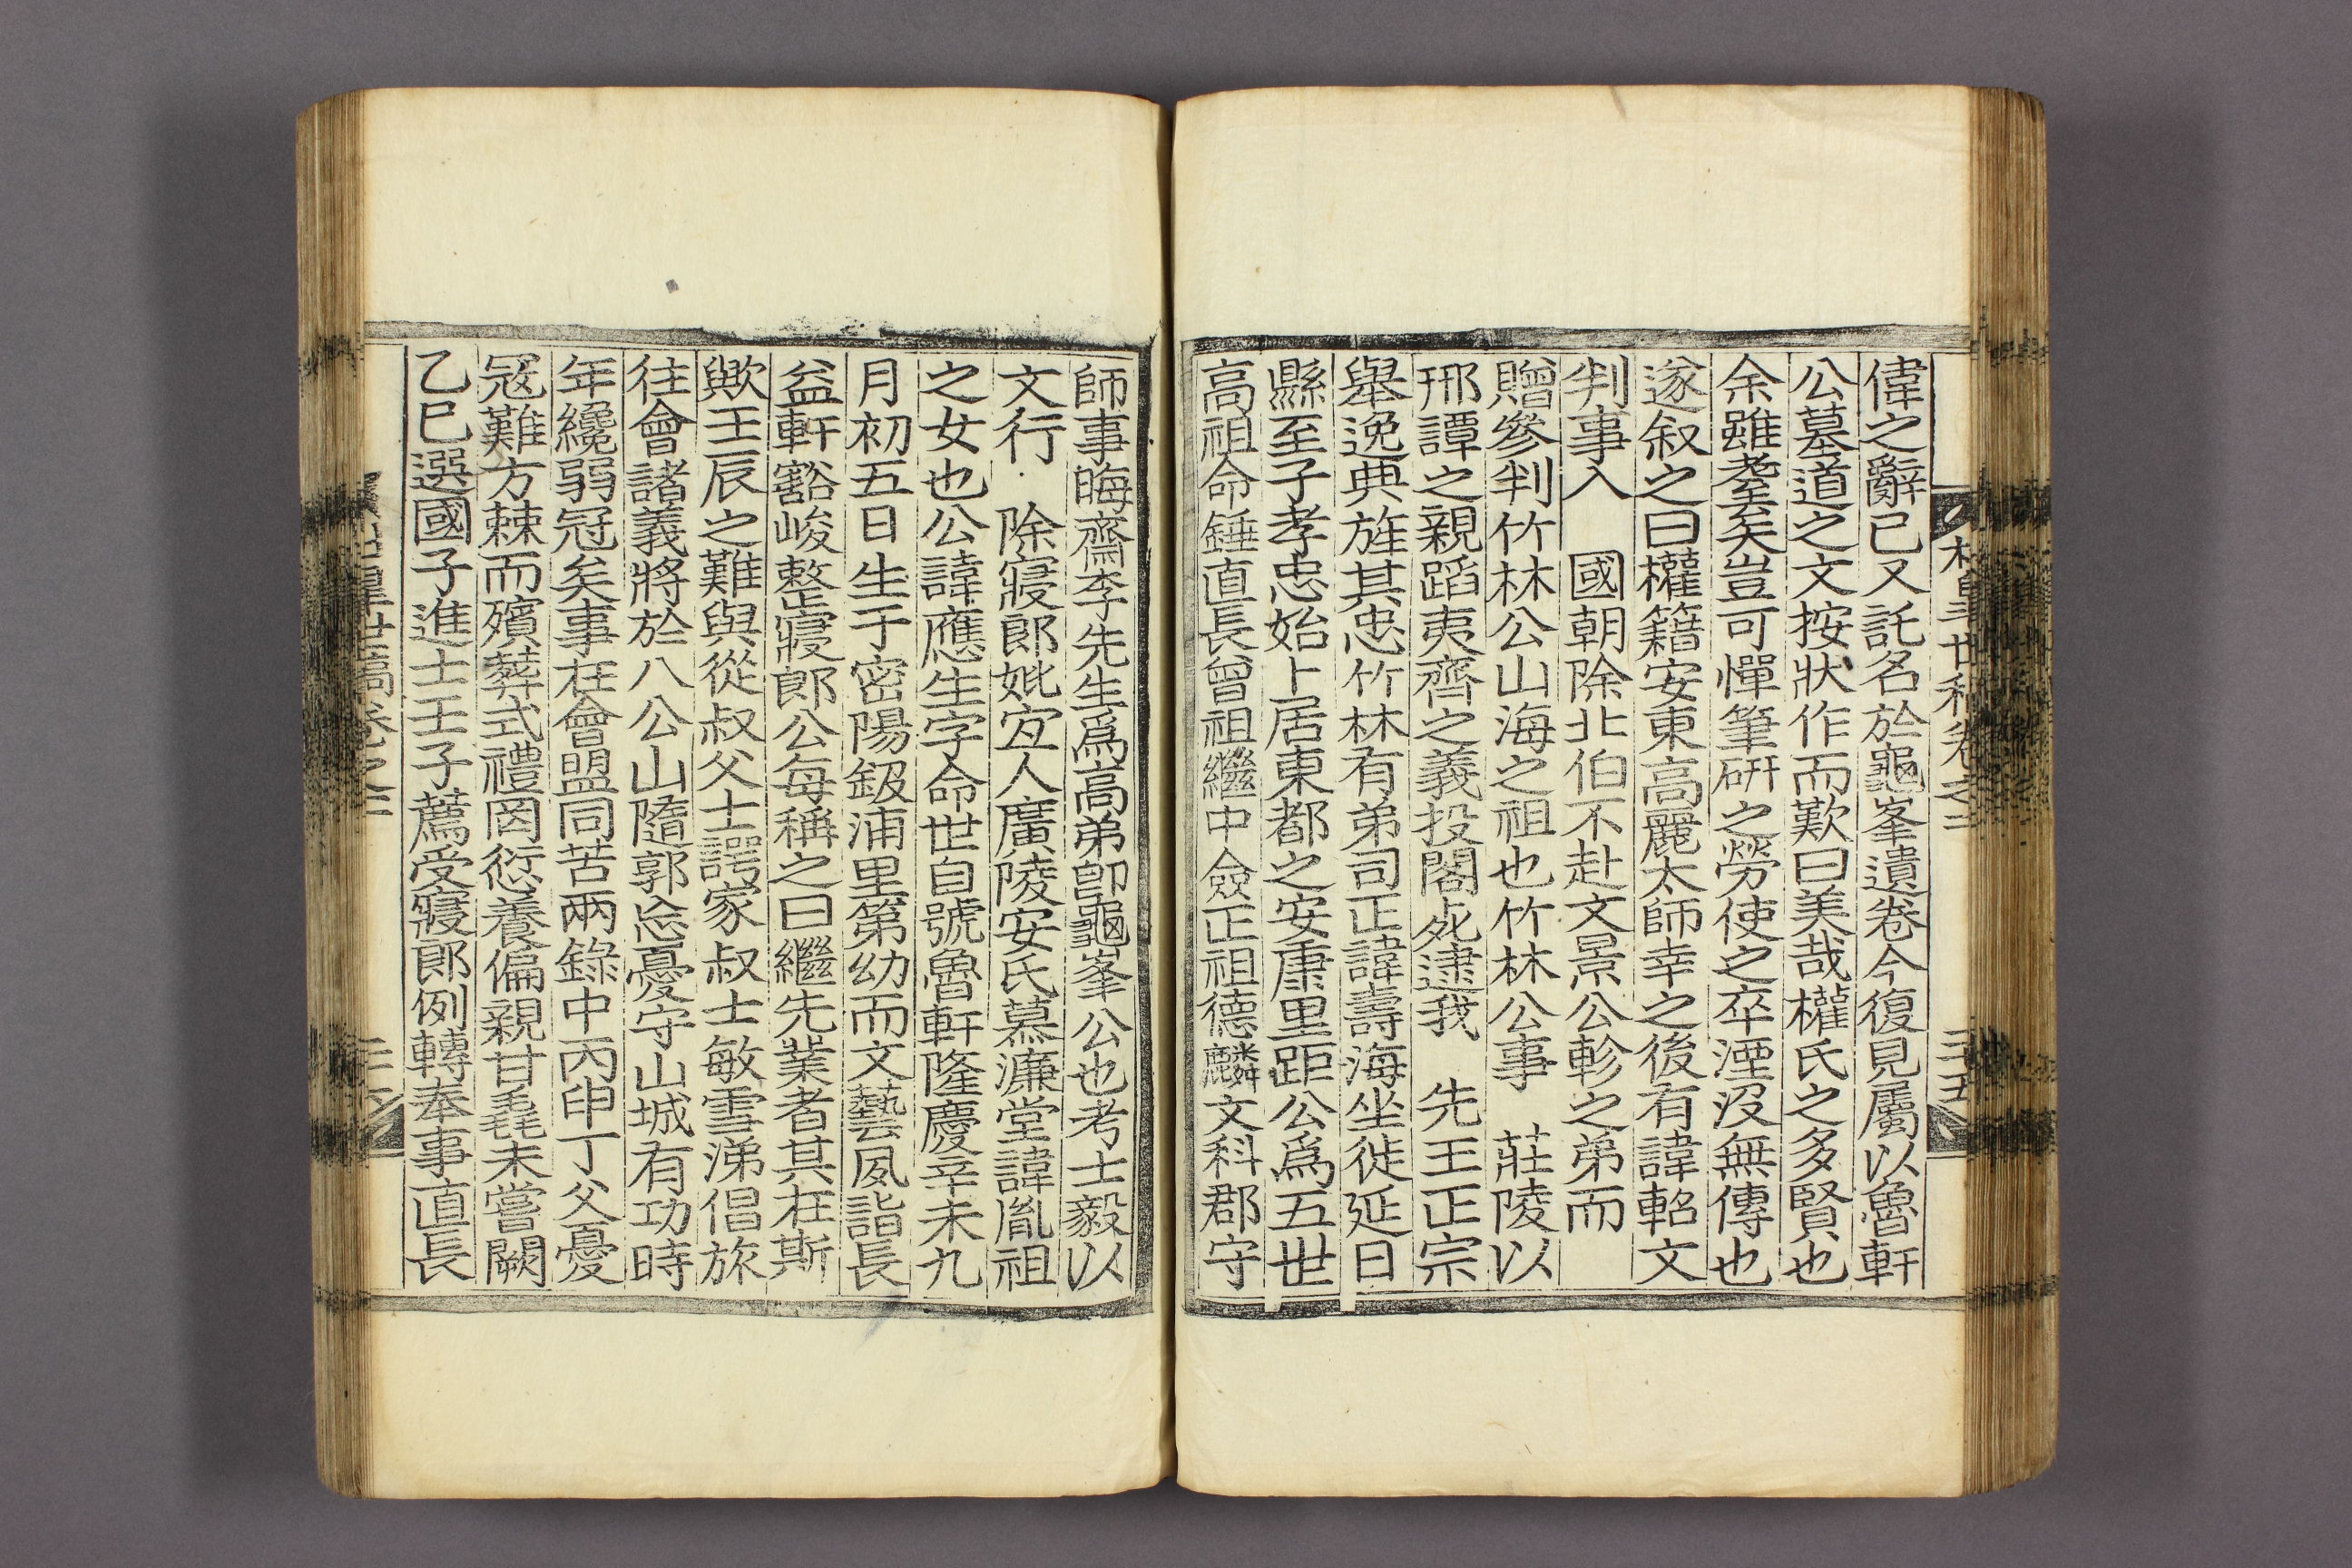 偉之辭已又託名於龜峯遺卷今復見屬以魯軒
公墓道之文按狀作而歎曰美哉權氏之多賢也
余雖耋矣豈可憚筆研之勞使之卒湮沒無傳也
遂叙之曰權籍安東高麗太師幸之後有諱軺文
判事入　國朝除北伯不赴文景公軫之弟而
贈參判竹林公山海之祖也竹林公事　莊陵以
邢譚之親蹈夷齊之義投閣死逮我　先王正宗
舉逸典旌其忠竹林有弟司正諱壽海坐徙延日
縣至子孝忠始卜居東都之安康里距公爲五世
高祖命錘直長曾祖繼中僉正祖德麟文科郡守
師事晦齋李先生爲高弟卽龜峯公也考士毅以
文行　除寢郞妣宜人廣陵安氏慕濂堂諱胤祖
之女也公諱應生字命世自號魯軒隆慶辛未九
月初五日生于密陽鈒浦里第幼而文藝夙詣長
益軒豁峻整寢郞公每稱之曰繼先業者其在斯
歟壬辰之難與從叔父士諤家叔士敏雪涕倡旅
往會諸義將於八公山隨郭忘憂守山城有功時
年纔弱冠矣事在會盟同苦兩錄中丙申丁父憂
冦難方棘而殯葬式禮罔愆養偏親甘毳未嘗闕
乙巳選國子進士壬子薦受寢郞例轉奉事直長